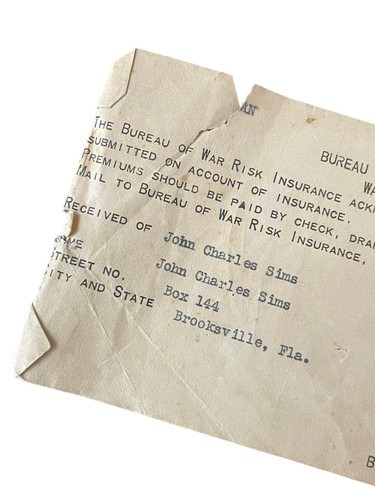 AN
BUREAU
WA
THE BUREAU OF WAR RISK INSURANCE ACK
SUBMITTED ON ACCOUNT OF INSURANCE.
PREMIUMS SHOULD BE PAID BY CHECK, DRA
MAIL TO BUREAU OF WAR RISK INSURANCE,
RECEIVED OF John Charles Sims
ME John Charles Sims
STREET NO. Box 144
ITY AND STATE Brooksville, Fla.
B